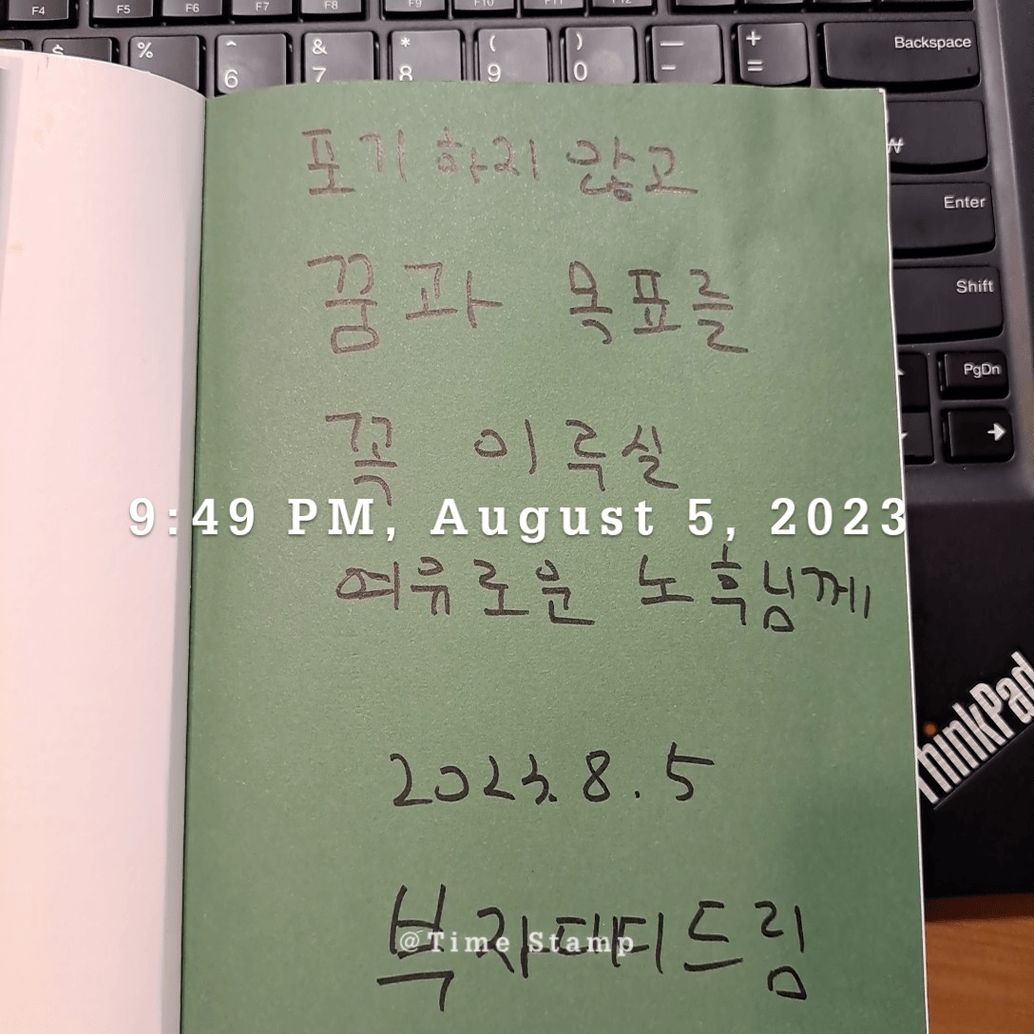 F4 F5 F6 F7 F8 F9 F10 F11 F12
$ % ^ & * ( ) — +
6 7 8 9 0 - =
Backspace
₩
Enter
Shift
PgDn
포기하지 않고
꿈과 목표를
꼭 이루실
9:49 PM, August 5, 2023
여유로운 노후님께
ThinkPad
2023.8.5
부자티티드림
@Time Stamp